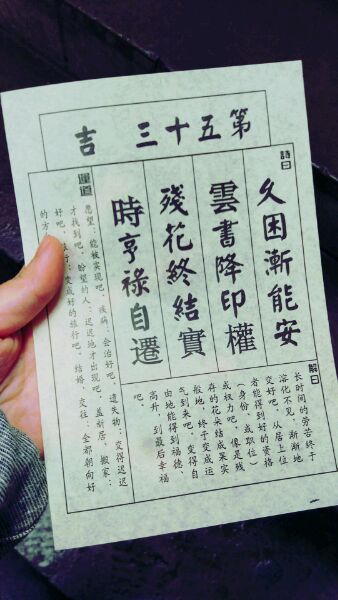 第五十三 吉
詩曰
久困漸能安
雲書降印權
殘花終結實
時亨祿自遷
解曰
长时间的劳苦终于
溶化不见，渐渐地
交好吧。从居上位
者能得到好的资格
（身份，或职位）
或权力吧。像是残
存的花朵结成果实
般地，终于变成运
气到来吧。变得自
由地能得到福德、
高升，到最后幸福
吧
運道
愿望：能被实现吧。疾病：会治好吧。遗失物：变得迟迟
才找到吧。盼望的人：迟迟地才出现吧。盖新居、搬家：
好吧。旅行：变成好的旅行吧。结婚、交往：全都朝向好
的方